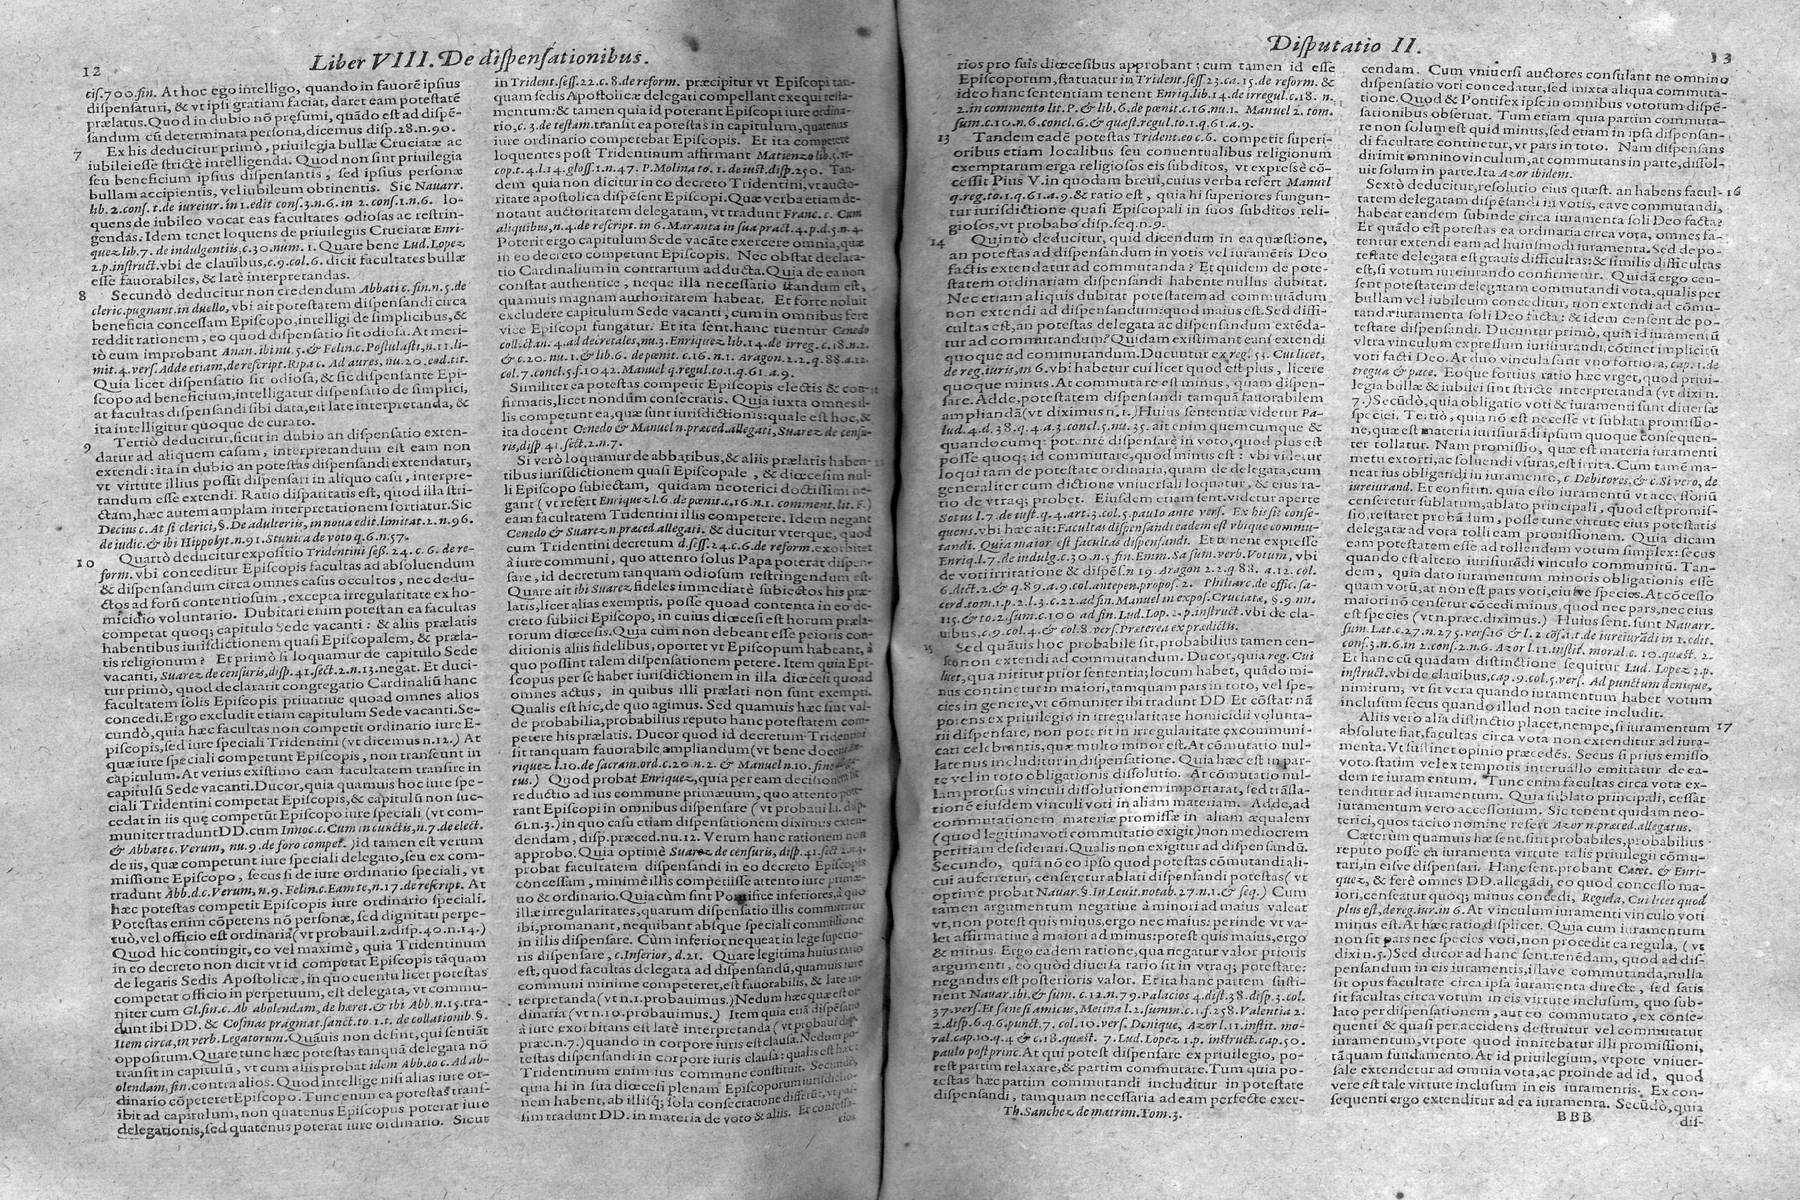 12
Liber VIII. De dispensationibus.
cis.700.fin. At hoc ego intelligo, quando in fauorē ipsius
dispensaturi, & vt ipsi gratiam faciat, daret eam potestatē
prælatus. Quod in dubio nō pręsumi, quādo est ad dispē-
sandum cū determinata persona, dicemus disp.28.n.90.
7 Ex his deducitur primò, priuilegia bullæ Cruciatæ ac
iubilei esse strictè intelligenda. Quod non sint priuilegia
seu beneficium ipsius dispensantis, sed ipsius personæ
bullam accipientis, vel iubileum obtinentis. Sic Nauarr.
lib.2.cons.t.de iureiur.in 1.edit cons.3.n.6.in 2.cons.1.n.6. lo-
quens de iubileo vocat eas facultates odiosas ac restrin-
gendas. Idem tenet loquens de priuilegiis Cruciatæ Enri-
quez lib.7. de indulgentiis,c.30.num.1. Quare bene Lud.Lopez
2.p.instruct.vbi de clauibus,c.9.col.6. dicit facultates bullæ
esse fauorabiles, & latè interpretandas.
8 Secundò deducitur non credendum Abbati c. fin.n.5.de
cleric.pugnant.in duello, vbi ait potestatem dispensandi circa
beneficia concessam Episcopo, intelligi de simplicibus, &
reddit rationem, eo quod dispensatio sit odiosa. At meri-
tò eum improbant Anan.ibi nu.5.& Felin.c.Postulasti,n.11.li-
mit.4.vers.Adde etiam,de rescript.Ripa c. Ad aures, nu.20.eod.tit.
Quia licet dispensatio sit odiosa, & sic dispensante Epi-
scopo ad beneficium, intelligatur dispensatio de simplici,
at facultas dispensandi sibi data, est latè interpretanda, &
ita intelligitur quoque de curato.
9 Tertiò deducitur, sicut in dubio an dispensatio exten-
datur ad aliquem casum, interpretandum est eam non
extendi : ita in dubio an potestas dispensandi extendatur,
vt virtute illius possit dispensari in aliquo casu, interpre-
tandum esse extendi. Ratio disparitatis est, quod illa stri-
ctam, hæc autem amplam interpretationem sortiatur. Sic
Decius c. At si clerici,§. De adulteriis, in noua edit.limitat.2.n.96.
de iudic.& ibi Hippolyt.n.91.Stunica de voto q.6.n.57.
10 Quartò deducitur expositio Tridentini seß.24.c.6.de re-
form. vbi conceditur Episcopis facultas ad absoluendum
& dispensandum circa omnes casus occultos, nec dedu-
ctos ad forū contentiosum, excepta irregularitate ex ho-
micidio voluntario. Dubitari enim potest an ea facultas
competat quoq; capitulo Sede vacanti : & aliis prælatis
habentibus iurisdictionem quasi Episcopalem, & præla-
tis religionum? Et primò si loquamur de capitulo Sede
vacanti, Suarez de censuris,disp.41.sect.2.n.13.negat. Et duci-
tur primò, quod declararit congregatio Cardinaliū hanc
facultatem solis Episcopis priuatiue quoad omnes alios
concedi. Ergo excludit etiam capitulum Sede vacanti. Se-
cundò, quia hæc facultas non competit ordinario iure E-
piscopis, sed iure speciali Tridentini (vt dicemus n.12.) At
quæ iure speciali competunt Episcopis, non transeunt in
capitulum. At verius existimo eam facultatem transire in
capitulū Sede vacanti. Ducor, quia quamuis hoc iure spe-
ciali Tridentini competat Episcopis, & capitulū non suc-
cedat in iis quę competūt Episcopo iure speciali (vt com-
muniter tradunt DD. cum Innoc.c.Cum in cunctis,n.7.de elect.
& Abbate c.Verum, nu.9.de foro compet.) id tamen est verum
de iis, quæ competunt iure speciali delegato, seu ex com-
missione Episcopo, secus si de iure ordinario speciali, vt
tradunt Abb.d.c.Verum,n.9.Felin.c.Eam te,n.17.de rescript. At
hæc potestas competit Episcopis iure ordinario speciali.
Potestas enim cōpetens nō personæ, sed dignitati perpe-
tuò, vel officio est ordinaria (vt probaui l.2.disp.40.n.14.)
Quod hic contingit, eo vel maximè, quia Tridentinum
in eo decreto non dicit vt id competat Episcopis tāquam
de legatis Sedis Apostolicæ, in quo euentu licet potestas
competat officio in perpetuum, est delegata, vt commu-
niter cum Gl.fin.c.Ab abolendam, de hæret.& ibi Abb.n.15.tra-
dunt ibi DD. & Cosmas pragmat.sanct.to 1.t.de collationib.§.
Item circa,in verb.Legatorum. Quāuis non desint, qui sentiāt
oppositum. Quare tunc hæc potestas tanquā delegata nō
transit in capitulū, vt cum aliis probat idem Abb.eo c.Ad ab-
olendam, fin. contra alios. Quod intellige nisi alias iure or-
dinario cōpeteret Episcopo. Tunc enim ea potestas trans-
ibit ad capitulum, non quatenus Episcopus poterat iure
delegationis, sed quatenus poterat iure ordinario. Sicut
in Trident.seff.22.c.8.de reform. præcipitur vt Episcopi tan-
quam sedis Apostolicæ delegati compellant exequi testa-
mentum : & tamen quia id poterant Episcopi iure ordina-
rio, c.3.de testam.transit ea potestas in capitulum, quatenus
iure ordinario competebat Episcopis. Et ita competere
loquentes post Tridentinum affirmant Matienzo lib.5.re-
cop.t.4.l.14.gloss.1.n.47. P.Molina to.1.de iust.disp.250. Tan-
dem quia non dicitur in eo decreto Tridentini, vt aucto-
ritate apostolica dispēsent Episcopi. Quæ verba etiam de-
notant auctoritatem delegatam, vt tradunt Franc.c. Cum
aliquibus,n.4.de rescript. in 6. Maranta in sua pract.4.p.d.5.n.4.
Poterit ergo capitulum Sede vacāte exercere omnia, quæ
in eo decreto competunt Episcopis. Nec obstat declara-
tio Cardinalium in contrarium adducta. Quia de ea non
constat authentice, neque illa necessario standum est,
quamuis magnam authoritatem habeat. Et forte noluit
excludere capitulum Sede vacanti, cum in omnibus fere
vice Episcopi fungatur. Et ita sent. hanc tuentur Cenedo
collectan.4.ad decretales,nu.3. Enriquez lib.14.de irreg.c.18.n.2.
& c.20.nu.1.& lib.6. de pœnit.c.16.n.1. Aragon.2.2.q.88.a.12.
col.7.concl.5.f.1042.Manuel q.regul.to.1.q.61.a.9.
Similiter ea potestas competit Episcopis electis & con-
firmatis, licet nondum consecratis. Quia iuxta omnes il-
lis competunt ea, quæ sunt iurisdictionis : quale est hoc, &
ita docent Cenedo & Manuel n.præced.allegati, Suarez de censu-
ris,disp.41.sect.2.n.7.
Si verò loquamur de abbatibus, & aliis prælatis haben-
tibus iurisdictionem quasi Episcopale, & diœcesim nul-
li Episcopo subiectam, quidam neoterici doctissimi ne-
gant (vt refert Enriquez l.6.de pœnit.c.16.n.1. comment.lit.F.)
eam facultatem Tridentini illis competere. Idem negant
Cenedo & Suarez n.præced.allegati. & ducitur vterque, quod
cum Tridentini decretum d.seff.24.c.6.de reform.exorbitet
à iure communi, quo attento solus Papa poterat dispen-
sare, id decretum tanquam odiosum restringendum est.
Quare ait ibi Suarez fideles immediatè subiectos his præ-
latis, licet alias exemptis, posse quoad contenta in eo de-
creto subiici Episcopo, in cuius diœcesi est horum præla-
torum diœcesis. Quia cùm non debeant esse peioris con-
ditionis aliis fidelibus, oportet vt Episcopum habeant, à
quo possint talem dispensationem petere. Item quia Epi-
scopus per se habet iurisdictionem in illa diœcesi quoad
omnes actus, in quibus illi prælati non sunt exempti.
Qualis est hic, de quo agimus. Sed quamuis hæc sint val-
de probabilia, probabilius reputo hanc potestatem com-
petere his prælatis. Ducor quod id decretum Tridentini
sit tanquam fauorabile ampliandum (vt bene docent En-
riquez l.10.de sacram.ord.c.20.n.2. & Manuel n.10. fine allega-
tus.) Quod probat Enriquez, quia per eam decisionem fit
reductio ad ius commune primæuum, quo attento pote-
rant Episcopi in omnibus dispensare (vt probaui l.2. disp.
61.n.3.) in quo casu etiam dispensationem diximus exten-
dendam, disp.præced.nu.12. Verum hanc rationem non
approbo. Quia optimè Suarez de censuris, disp.41.sect.2.n.3.
probat facultatem dispensandi in eo decreto Episcopis
concessam, minimè illis competiisse attento iure primæ-
uo & ordinario. Quia cùm sint Pontifice inferiores, à quo
illæ irregularitates, quarum dispensatio illis committitur
ibi, promanant, nequibant absque speciali commissione
in illis dispensare. Cùm inferior nequeat in lege superio-
ris dispensare, c.Inferior, d.21. Quare legitima huius ratio
est, quod facultas delegata ad dispensandū, quamuis iure
communi minime competeret, est fauorabilis, & late in-
terpretanda (vt n.1.probauimus.) Nedum hæc quæ est or-
dinaria (vt n.10.probauimus.) Item quia etiā dispēsatio
à iure exorbitans est latè interpretanda (vt probaui disp.
præc.n.7.) quando in corpore iuris est clausa. Nedum po-
testas dispensandi in corpore iuris clausa : qualis est hæc :
Tridentinum enim ius commune constituit. Secundò,
quia hi in sua diœcesi plenam Episcoporum iurisdictio-
nem habent, ab illisq; sola consecratione differūt, vt pas-
sim tradunt DD. in materia de voto & aliis. Et confessa-
rios
Disputatio II.
13
rios pro suis diœcesibus approbant : cum tamen id esse
Episcoporum, statuatur in Trident.seff.23.ca.15.de reform. &
ideo hanc sententiam tenent Enriq.lib.14.de irregul.c.18. n.
2.in commento lit.P.& lib.6.de pœnit.c.16.nu.1. Manuel 2. tom.
sum.c.10.n.6.concl.6.& quæst.regul.to.1.q.61.a.9.
13 Tandem eadē potestas Trident.eo c.6. competit superi-
oribus etiam localibus seu conuentualibus religionum
exemptarum erga religiosos eis subditos, vt expressè cō-
cessit Pius V. in quodam breui, cuius verba refert Manuel
q.reg.to.1.q.61.a.9.& ratio est, quia hi superiores fungun-
tur iurisdictione quasi Episcopali in suos subditos reli-
giosos, vt probabo disp.seq.n.9.
14 Quintò deducitur, quid dicendum in ea quæstione,
an potestas ad dispensandum in votis vel iuramētis Deo
factis extendatur ad commutanda? Et quidem de pote-
statem ordinariam dispensandi habente nullus dubitat.
Nec etiam aliquis dubitat potestatem ad commutādum
non extendi ad dispensandum : quod maius est. Sed diffi-
cultas est, an potestas delegata ac dispensandum extēda-
tur ad commutandum? Quidam existimant eam extendi
quoque ad commutandum. Ducuntur ex reg.53. Cui licet,
de reg.iuris,in 6. vbi habetur cui licet quod est plus, licere
quoque minus. At commutare est minus, quam dispen-
sare. Adde, potestatem dispensandi tamquā fauorabilem
ampliandā (vt diximus n.1.) Huius sententiæ videtur Pa-
lud.4.d.38.q.4.a.3.concl.5.nu.35. ait enim quemcumque &
quandocumq; potentē dispensare in voto, quod plus est
posse quoq; id commutare, quod minus est : vbi videtur
loqui tam de potestate ordinaria, quam de delegata, cum
generaliter cum dictione vniuersali loquatur, & eius ra-
tio de vtraq; probet. Eiusdem etiam sent. videtur aperte
Sotus l.7.de iust.q.4.art.3.col.5.paulo ante vers. Ex his fit conse-
quens. vbi hæc ait : Facultas dispensandi eadem est vbique commu-
tandi. Quia maior est facultas dispensandi. Et tenent expresse
Enriq.l.7.de indulg.c.30.n.5.fin.Emm.Sa sum.verb.Votum, vbi
de voti irritatione & dispēs.n.19. Aragon 2.2.q 88. a.12.col.
6.dict.2.& q.89.a.9.col.antepen.propos.2. Philiarc.de offic.sa-
cerd.tom.1.p.2.l.3.c.22.ad fin.Manuel in expos.Cruciatæ, §.9.nu.
115.& to.2.sum.c.100 ad fin.Lud.Lop.2.p.instruct. vbi de cla-
uibus, c.9.col.4.& col.8.vers.Preterea ex prædictis.
15 Sed quāuis hoc probabile sit, probabilius tamen cen-
seo non extendi ad commutandum. Ducor, quia reg. Cui
licet, qua nititur prior sententia; locum habet, quādo mi-
nus continetur in maiori, tamquam pars in toto, vel spe-
cies in genere, vt cōmuniter ibi tradunt DD Et cōstat: nā
potens ex priuilegio in irregularitate homicidii volunta-
rii dispensare, non poterit in irregularitate excommuni-
cati celebrantis, quæ multo minor est. At cōmutatio nul-
latenus includitur in dispensatione. Quia hæc est in par-
te vel in toto obligationis dissolutio. At cōmutatio nul-
lam prorsus vinculi dissolutionem importarat, sed trāsla-
tionē eiusdem vinculi voti in aliam materiam. Adde, ad
commutationem materiæ promissæ in aliam æqualem
(quod legitima voti commutatio exigit) non mediocrem
peritiam desiderari. Qualis non exigitur ad dispensandū.
Secundo, quia nō eo ipso quod potestas cōmutandi ali-
cui auferretur, censeretur ablati dispensandi potestas (vt
optime probat Nauar.§.In Leuit.notab.27.n.1.& seq.) Cum
tamen argumentum negatiue à minori ad maius valeat
vt, non potest quis minus, ergo nec maius : perinde vt va-
let affirmatiue à maiori ad minus : potest quis maius, ergo
& minus. Ergo eadem ratione, qua negatur valor prioris
argumenti, eo quòd diuersa ratio sit in vtraq; potestate:
negandus est posterioris valor. Et ita hanc partem susti-
nent Nauar.ibi,& sum. c.12.n.79.Palacios 4.dist.38.disp.3.col.
37.vers.Et sane si amicus,Metina l.2.summ.c.1.f.258.Valentia 2.
2.disp.6.q.6.punct.7. col.10.vers. Denique, Azor l.11.instit. mo-
ral.cap.10.q.4 & c.18.quæst. 7.Lud.Lopez 1.p. instruct. cap.50.
paulo post princ. At qui potest dispensare ex priuilegio, po-
test partim relaxare, & partim commutare. Tum quia po-
testas hæc partim commutandi includitur in potestate
dispensandi, tamquam necessaria ad eam perfecte exer-
Th.Sanchez de matrim.Tom.3.
cendam. Cum vniuersi auctores consulant ne omnino
dispensatio voti concedatur, sed mixta aliqua commuta-
tione. Quod & Pontifex ipse in omnibus votorum dispē-
sationibus obseruat. Tum etiam quia partim commuta-
re non solum est quid minus, sed etiam in ipsa dispensan-
di facultate continetur, vt pars in toto. Nam dispensans
dirimit omnino vinculum, at commutans in parte, dissol-
uit solum in parte. Ita Azor ibidem.
Sextò deducitur, resolutio eius quæst. an habens facul- 16
tatem delegatam dispēsandi in votis, eave commutandi,
habeat eandem subinde circa iuramenta soli Deo facta?
Et quādo est potestas ea ordinaria circa vota, omnes fa-
tentur extendi eam ad huiusmodi iuramenta. Sed de po-
testate delegata est grauis difficultas : & similis difficultas
est, si votum iureiurando confirmetur. Quidā ergo cen-
sent potestatem delegatam commutandi vota, qualis per
bullam vel iubileum conceditur, non extendi ad cōmu-
tandæ iuramenta soli Deo facta : & idem censent de po-
testate dispensandi. Ducuntur primò, quia id iuramentū
vltra vinculum expressum iurisiurandi, cōtinet implicitū
voti facti Deo. At duo vincula sunt vno fortiora, cap.1.de
tregua & pace. Eoque fortius ratio hæc vrget, quod priui-
legia bullæ & iubilei sint stricte interpretandā (vt dixi n.
7.) Secūdò, quia obligatio voti & iuramenti sunt diuersæ
speciei. Tertiò, quia nō est necesse vt sublata promissio-
ne, quæ est materia iurisiurādi ipsum quoque consequen-
ter tollatur. Nam promissio, quæ est materia iuramenti
metu extorti, ac soluendi vsuras, est irrita. Cum tamē ma-
neat ius obligandi in iuramento, c Debitores,& c.Si vero, de
iureiurand. Et confirm. quia esto iuramentū vt accessoriū
censeretur sublatum, ablato principali, quod est promis-
sio, restaret probādum, posse tunc virtute eius potestatis
delegatæ ad vota tolli eam promissionem. Quia dicam
eam potestatem esse ad tollendum votum simplex : secus
quando est altero iurisiurādi vinculo communitū. Tan-
dem, quia dato iuramentum minoris obligationis esse
quam votū, at non est pars voti, eiusve species. At cōcesso
maiori nō censetur cōcedi minus, quod nec pars, nec eius
est species (vt n.præc.diximus.) Huius sent. sunt Nauarr.
sum.Lat.c.27.n.275.vers.16 & l.2.cōs.t.t.de iureiurādi in 1.edit.
cons.3.n.6.in 2.cons.2.n.6. Azor l.11.instit. moral.c.10.quæst. 2.
Et hanc cū quadam distinctione sequitur Lud. Lopez 2.p.
instruct.vbi de clauibus, cap.9.col.5.vers. Ad punctum denique,
nimirum, vt sit vera quando iuramentum habet votum
inclusum secus quando illud non tacite includit.
Aliis vero alia distinctio placet, nempe, si iuramentum 17
absolute fiat, facultas circa vota non extenditur ad iura-
menta. Vt sustinet opinio præcedēs. Secus si prius emisso
voto. statim vel ex temporis interuallo emittatur de ea-
dem re iuramentum. Tunc enim facultas circa vota ex-
tenditur ad iuramentum. Quia sublato principali, cessat
iuramentum vero accessorium. Sic tenent quidam neo-
terici, quos tacito nomine refert Azor n.præced.allegatus.
Cæterùm quamuis hæ sent. sint probabiles, probabilius
reputo posse ea iuramenta virtute talis priuilegii cōmu-
tari, in eisve dispensari. Hanc sent. probant Caiet. & Enri-
quez, & ferè omnes DD.allegādi, eo quod concesso ma-
iori, censeatur quoq; minus concedi, Regula, Cui licet quod
plus est,de reg.iur.in 6. At vinculum iuramenti vinculo voti
minus est. At hæc ratio displicet. Quia cum iuramentum
non sit pars nec species voti, non procedit ea regula, (vt
dixi n.5.) Sed ducor ad hanc sent. tenēdam, quod ad dis-
pensandum in eis iuramentis, illave commutanda, nulla
sit opus facultate circa ipsa iuramenta directe, sed satis
sit facultas circa votum in eis virtute inclusum, quo sub-
lato per dispensationem, aut eo commutato, ex conse-
quenti & quasi per accidens destruitur vel commutatur
iuramentum, vtpote quod innitebatur illi promissioni,
tāquam fundamento. At id priuilegium, vtpote vniuer-
sale extendetur ad omnia vota, ac proinde ad id, quod
vere est tale virtute inclusum in eis iuramentis. Ex con-
sequenti ergo extenditur ad ea iuramenta. Secūdò, quia
BBB
dis-